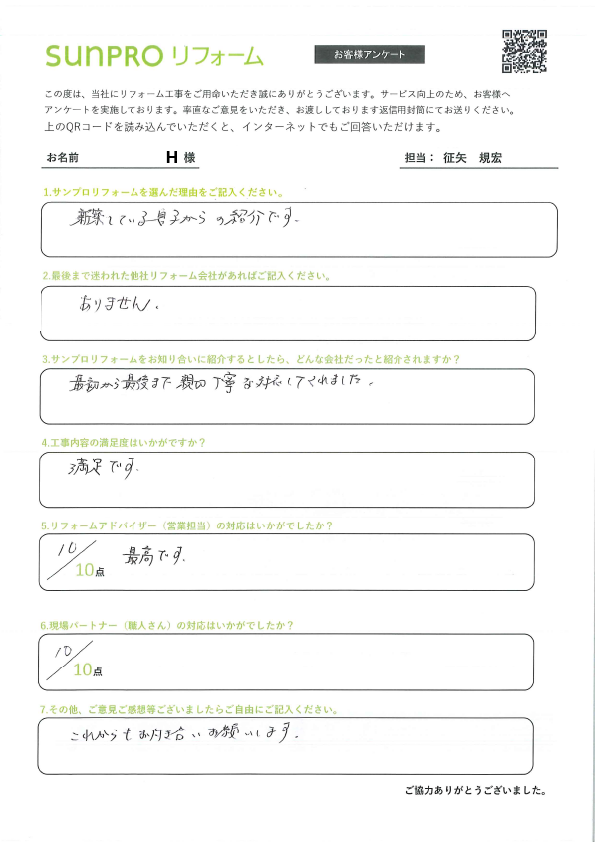 SUNPRO リフォーム
お客様アンケート
この度は、当社にリフォーム工事をご用命いただき誠にありがとうございます。サービス向上のため、お客様へ
アンケートを実施しております。率直なご意見をいただき、お渡ししております返信用封筒にてお送りください。
上のQRコードを読み込んでいただくと、インターネットでもご回答いただけます。
お名前 H 様 担当： 征矢 規宏
1.サンプロリフォームを選んだ理由をご記入ください。
新築している息子からの紹介です.
2.最後まで迷われた他社リフォーム会社があればご記入ください。
ありません.
3.サンプロリフォームをお知り合いに紹介するとしたら、どんな会社だったと紹介されますか？
最初から最後まで親切丁寧な対応してくれました.
4.工事内容の満足度はいかがですか？
満足です.
5.リフォームアドバイザー（営業担当）の対応はいかがでしたか？
10/10点 最高です.
6.現場パートナー（職人さん）の対応はいかがでしたか？
10/10点
7.その他、ご意見ご感想等ございましたらご自由にご記入ください。
これからもお付き合いお願いします.
ご協力ありがとうございました。